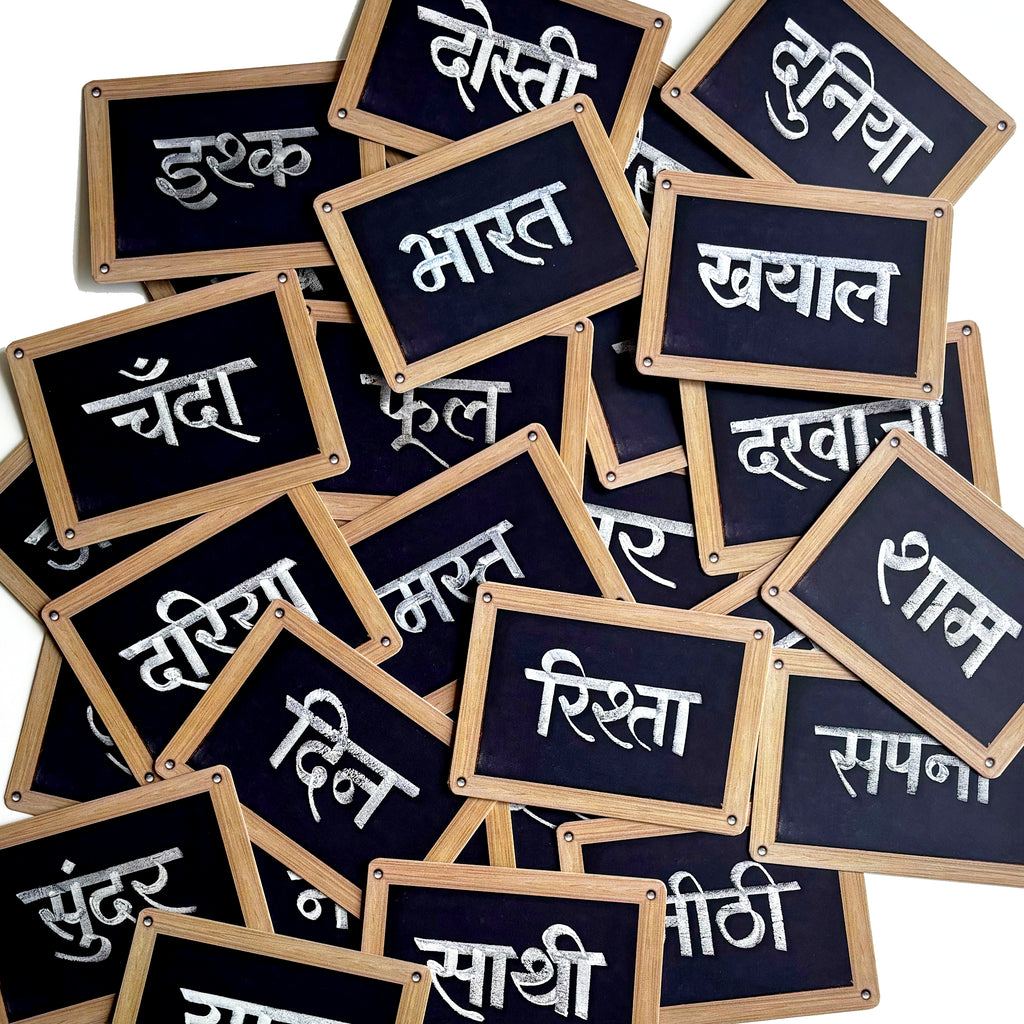 दोस्ती
दुनिया
इश्क
भारत
खयाल
चँदा
फूल
दरवाजा
मस्त
शाम
दरिया
रिश्ता
दिन
सपना
सुंदर
साथी